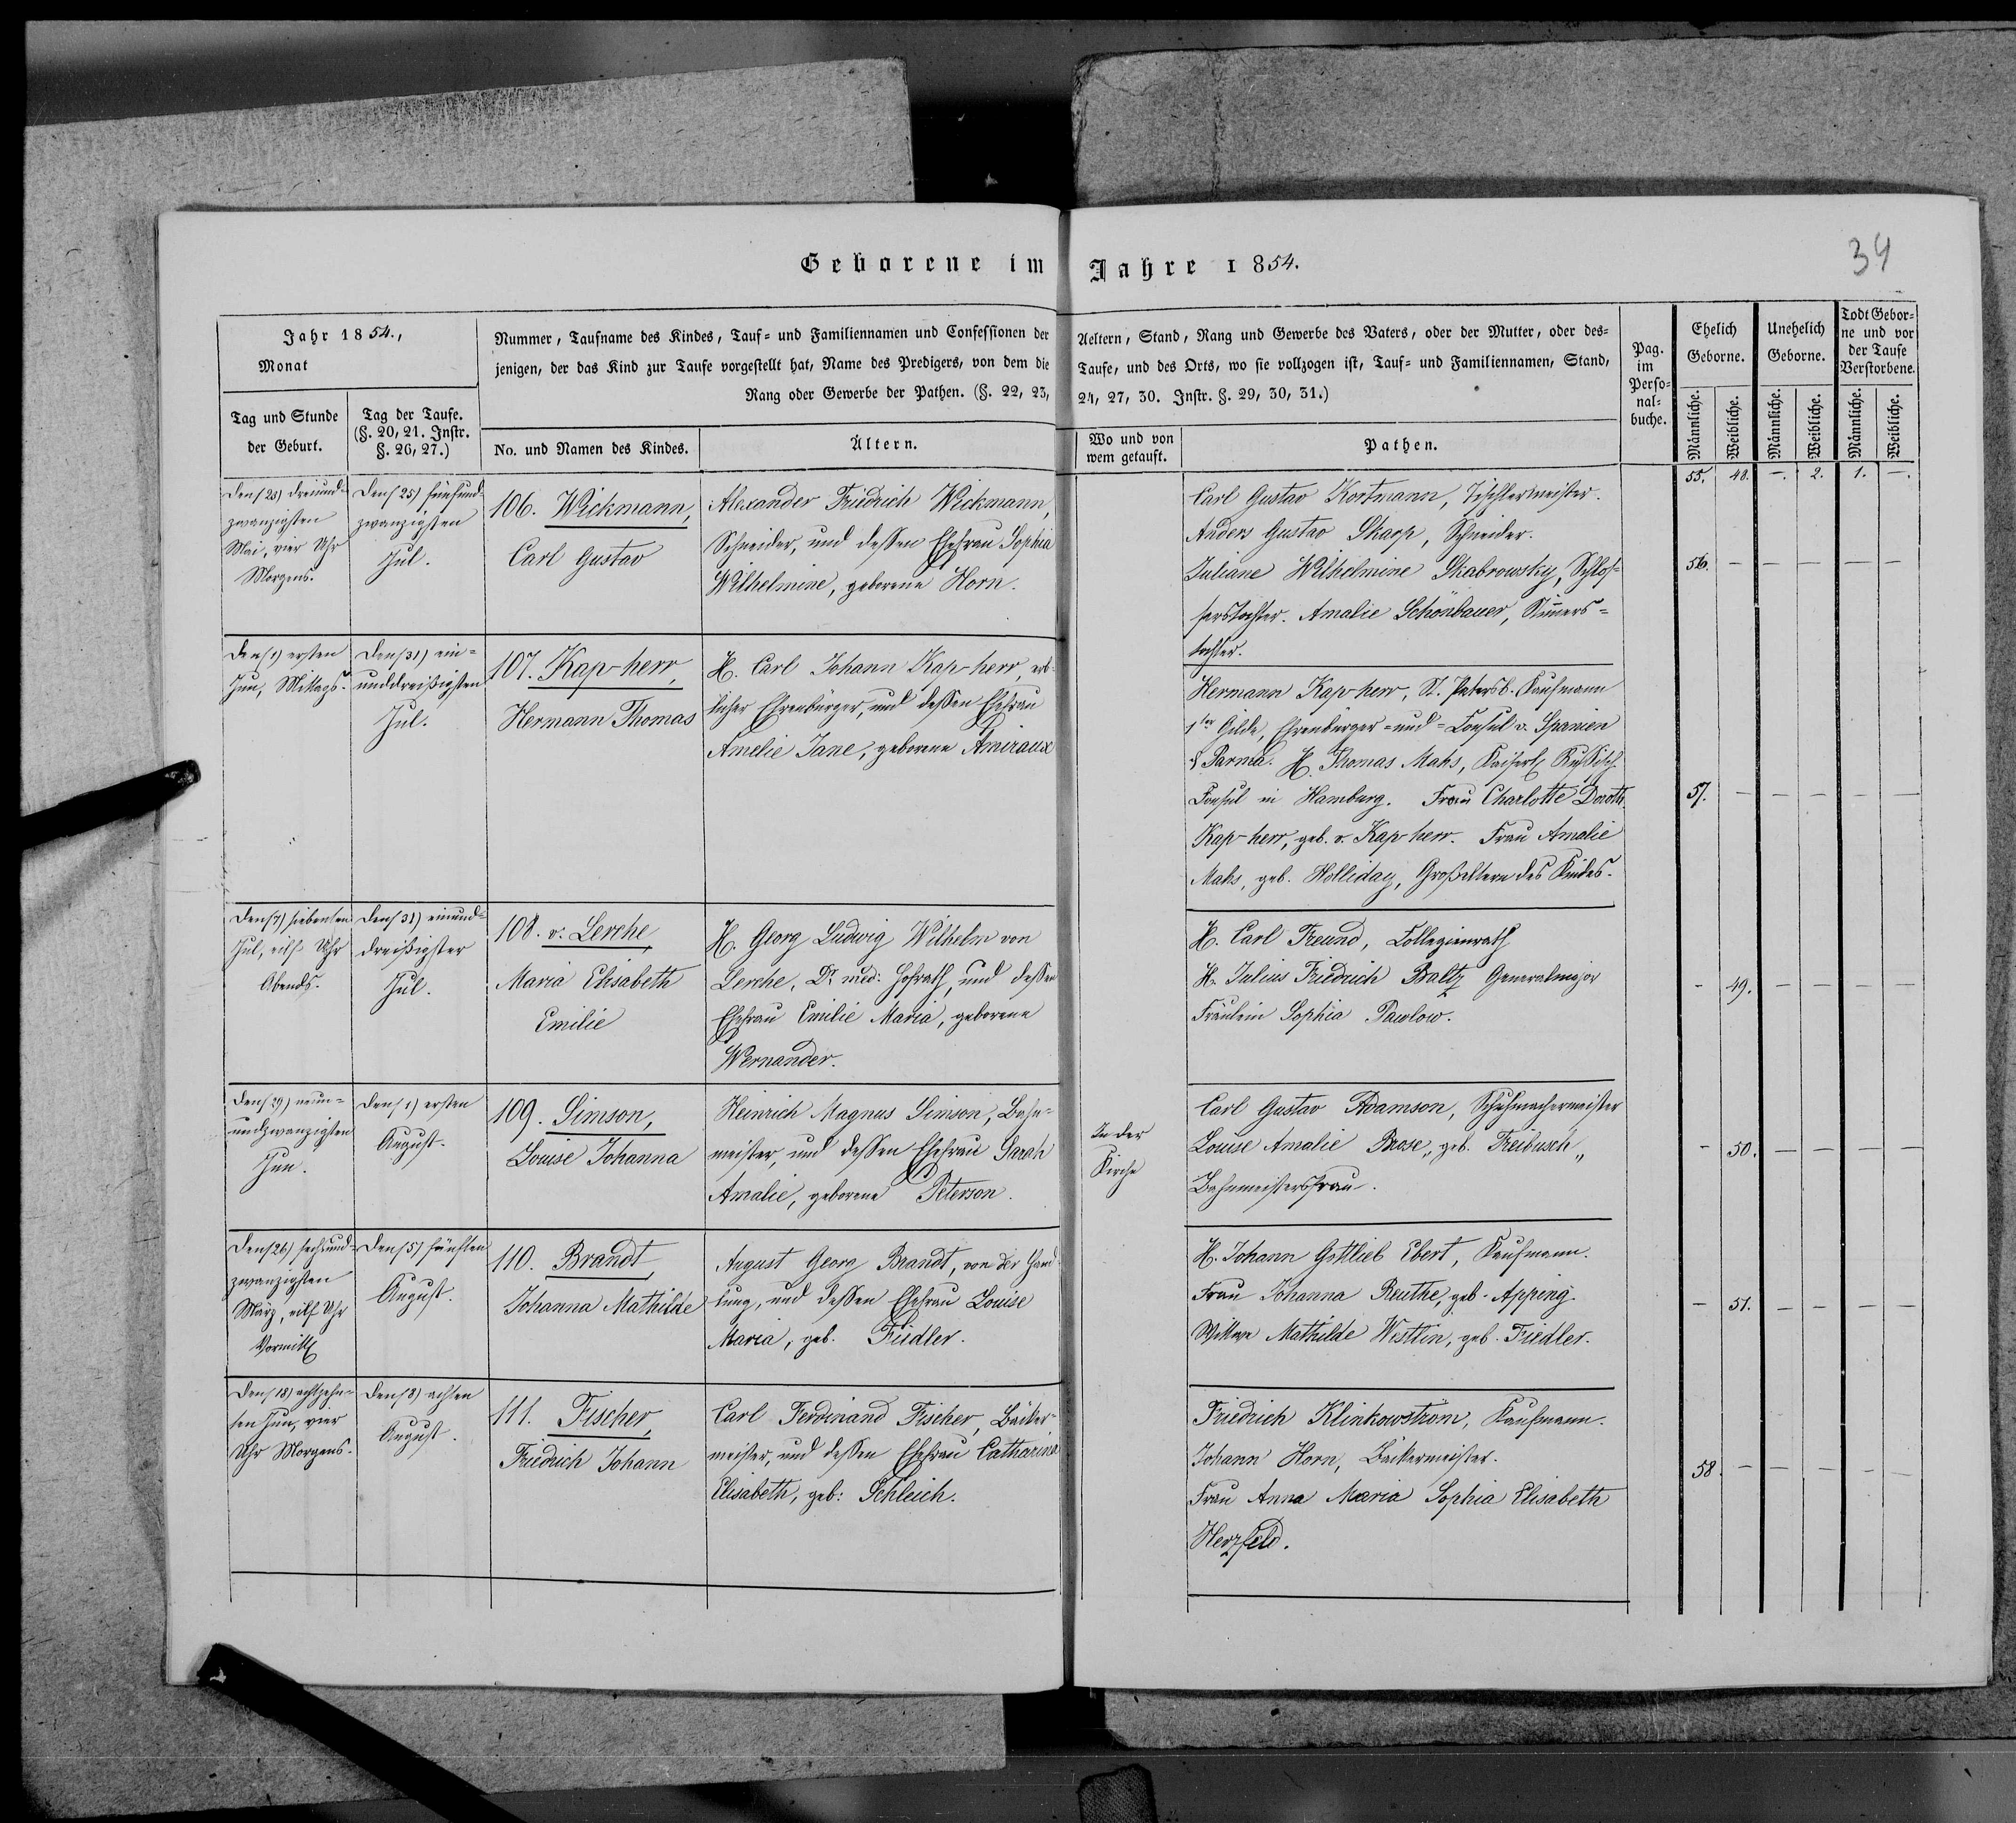 Geborene im Jahre 1854.
34
Jahr 1854.,
Monat
Tag und Stunde
der Geburt.
Tag der Taufe.
(§. 20, 21. Instr.
§. 26, 27.)
Nummer, Taufname des Kindes, Tauf= und Familiennamen und Confessionen der Aeltern, Stand, Rang und Gewerbe des Vaters, oder der Mutter, oder des=
jenigen, der das Kind zur Taufe vorgestellt hat, Name des Predigers, von dem die Taufe, und des Orts, wo sie vollzogen ist, Tauf= und Familiennamen, Stand,
Rang oder Gewerbe der Pathen. (§. 22, 23, 24, 27, 30. Instr. §. 29, 30, 31.)
No. und Namen des Kindes.
Ältern.
Wo und von
wem getauft.
Pathen.
Pag.
im
Perso=
nal=
buche.
Ehelich
Geborne.
Unehelich
Geborne.
Todt Gebor=
ne und vor
der Taufe
Verstorbene.
Männliche.
Weibliche.
Männliche.
Weibliche.
Männliche.
Weibliche.
55. 48. —. 2. 1. —.
Den (23) dreiund=
zwanzigsten
Mai, vier Uhr
Morgens.
Den (25) fünfund=
zwanzigsten
Jul.
106. Wickmann,
Carl Gustav
Alexander Friedrich Wickmann,
Schneider, und dessen Ehefrau Sophia
Wilhelmine, geborene Horn.
Carl Gustav Kortmann, Tischlermeister.
Anders Gustav Skarp, Schneider.
Juliane Wilhelmine Skabrowsky, Schlos=
serstochter. Amalie Schönbauer,
tochter.
56. — — — — —
Den (1) ersten
Jun, Mittags.
Den (31) ein=
unddreißigsten
Jul.
107. Kap-herr,
Hermann Thomas
H. Carl Johann Kap-herr, erb=
licher Ehrenbürger, und dessen Ehefrau
Amelie Jane, geborene Amiraux
Hermann Kap-herr, St. Petersb. Kaufmann
1ter Gilde, Ehrenbürger = und = Consul v. Spanien
& Parma. H. Thomas Mahs, Kaiserl. Russisch.
Consul in Hamburg. Frau Charlotte Doroth.
Kap-herr, geb. v. Kap-herr. Frau Amalie
Mahs, geb. Holliday, Großeltern des Kindes.
57. — — — — —
Den (7) siebenten
Jul, eilf Uhr
Abends.
Den (31) einund=
dreißigsten
Jul.
108. v. Lerche
Maria Elisabeth
Emilie
H. Georg Ludwig Wilhelm von
Lerche, Dr. med: Hofrath, und dessen
Ehefrau Emilie Maria, geborene
Wernander.
H. Carl Freund, Collegienrath
H. Julius Friedrich Baltz Generalmajor
Fräulein Sophia Pawlow.
- 49. — — — —
Den (29) neun=
undzwanzigsten
Jun.
Den (1) ersten
August.
109. Simson,
Louise Johanna
Heinrich Magnus Simson, Bahn=
meister, und dessen Ehefrau Sarah
Amalie, geborene Peterson.
In der
Kirche
Carl Gustav Adamson, Schuhmachermeister
Louise Amalie Brose, geb. Freibusch,
Bahnmeistersfrau.
- 50. — — — —
Den (26) sechsund=
zwanzigsten
März, eilf Uhr
Vormitt.
Den (5) fünften
August.
110. Brandt,
Johanna Mathilde
August Georg Brandt, von der Hand=
lung, und dessen Ehefrau Louise
Maria, geb. Fiedler.
H. Johann Gottlieb Ebert, Kaufmann.
Frau Johanna Reuthe, geb. Apping.
Wittwe Mathilde Westlin, geb. Fiedler.
— 51. — — — —
Den (18) achtzehn=
ten Jun, vier
Uhr Morgens.
Den (8) achten
August.
111. Fischer,
Friedrich Johann
Carl Ferdinand Fischer, Bäcker=
meister, und dessen Ehefrau Catharina
Elisabeth, geb: Schleich.
Friedrich Klinkowström, Kaufmann.
Johann Horn, Bäckermeister.
Frau Anna Maria Sophia Elisabeth
Herzfeld.
58. — — — — —